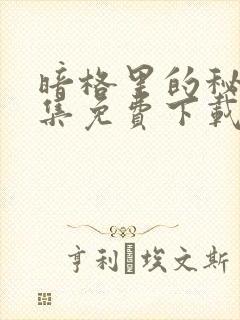 暗格里的秘
集免费下载
亨利·埃文斯